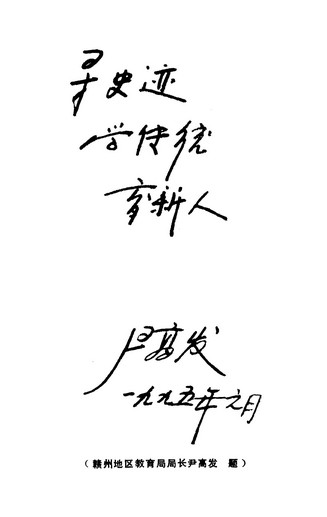 寻史迹
学传统
育新人
尹高发
一九九五年元月
（赣州地区教育局局长尹高发　题）